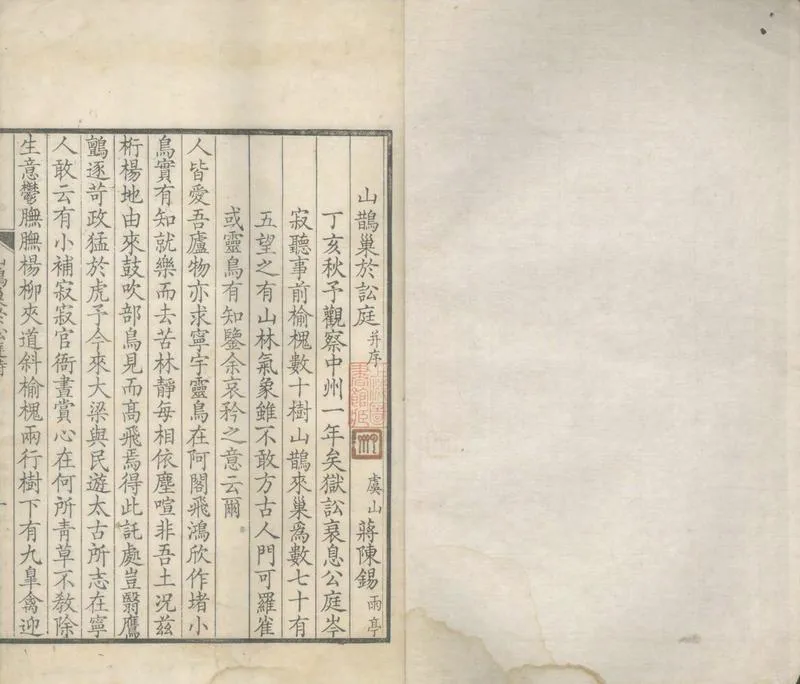 山鵲巢於訟庭 并序 虞山 蔣陳錫 雨亭
丁亥秋予觀察中州一年矣獄訟衰息公庭岑
寂聽事前榆槐數十樹山鵲來巢為數七十有
五望之有山林氣象雖不敢方古人門可羅雀
或靈鳥有知鑒余哀矜之意云爾
人皆愛吾廬物亦求寧宇靈鳥在阿閣飛鴻欣作堵小
鳥實有知就樂而去苦林靜每相依塵喧非吾土況茲
桁楊地由來鼓吹部鳥見而高飛焉得此託處豈翳鷹
鸇逐苛政猛於虎予今來大梁與民遊太古所志在寧
人敢云有小補寂寂官衙晝賞心在何所青草不教除
生意鬱膴膴楊柳夾道斜榆槐兩行樹下有九皐禽迎